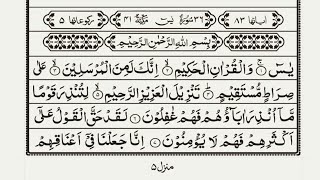 اٰيَاتُهَا ٨٣ ٣٦ سُوْرَةُ يٰسٓ مَكِّيَّةٌ ٤١ رُكُوْعَاتُهَا ٥
بِسْمِ اللّٰهِ الرَّحْمٰنِ الرَّحِيْمِ
يٰسٓ ۚ﴿۱﴾ وَالْقُرْاٰنِ الْحَكِيْمِ ۙ﴿۲﴾ اِنَّكَ لَمِنَ الْمُرْسَلِيْنَ ۙ﴿۳﴾ عَلٰى
صِرَاطٍ مُّسْتَقِيْمٍ ؕ﴿۴﴾ تَنْزِيْلَ الْعَزِيْزِ الرَّحِيْمِ ۙ﴿۵﴾ لِتُنْذِرَ قَوْمًا
مَّاۤ اُنْذِرَ اٰبَآؤُهُمْ فَهُمْ غٰفِلُوْنَ ﴿۶﴾ لَقَدْ حَقَّ الْقَوْلُ عَلٰۤى
اَكْثَرِهِمْ فَهُمْ لَا يُؤْمِنُوْنَ ﴿۷﴾ اِنَّا جَعَلْنَا فِيْۤ اَعْنَاقِهِمْ
منزل ٥